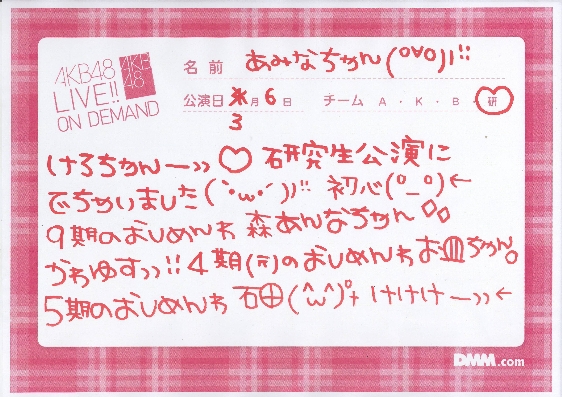 AKB48
LIVE!!
ON DEMAND
AKB
48
名前 あみなちゃん(o∀o)ﾉ!!
公演日 月 6 日 チーム A・K・B・研
3
けろちゃんー>> ♡ 研究生公演に
でちゃいました(`･ω･´)ﾉ!! 初心(°_°)←
9期のおしめんわ 森あんなちゃん◇◇
かわゆすっっ!! 4期(元)のおしめんわ お皿ちゃん。
5期のおしめんわ 石田(^ω^)゜+ けけけー>>←
DMM.com